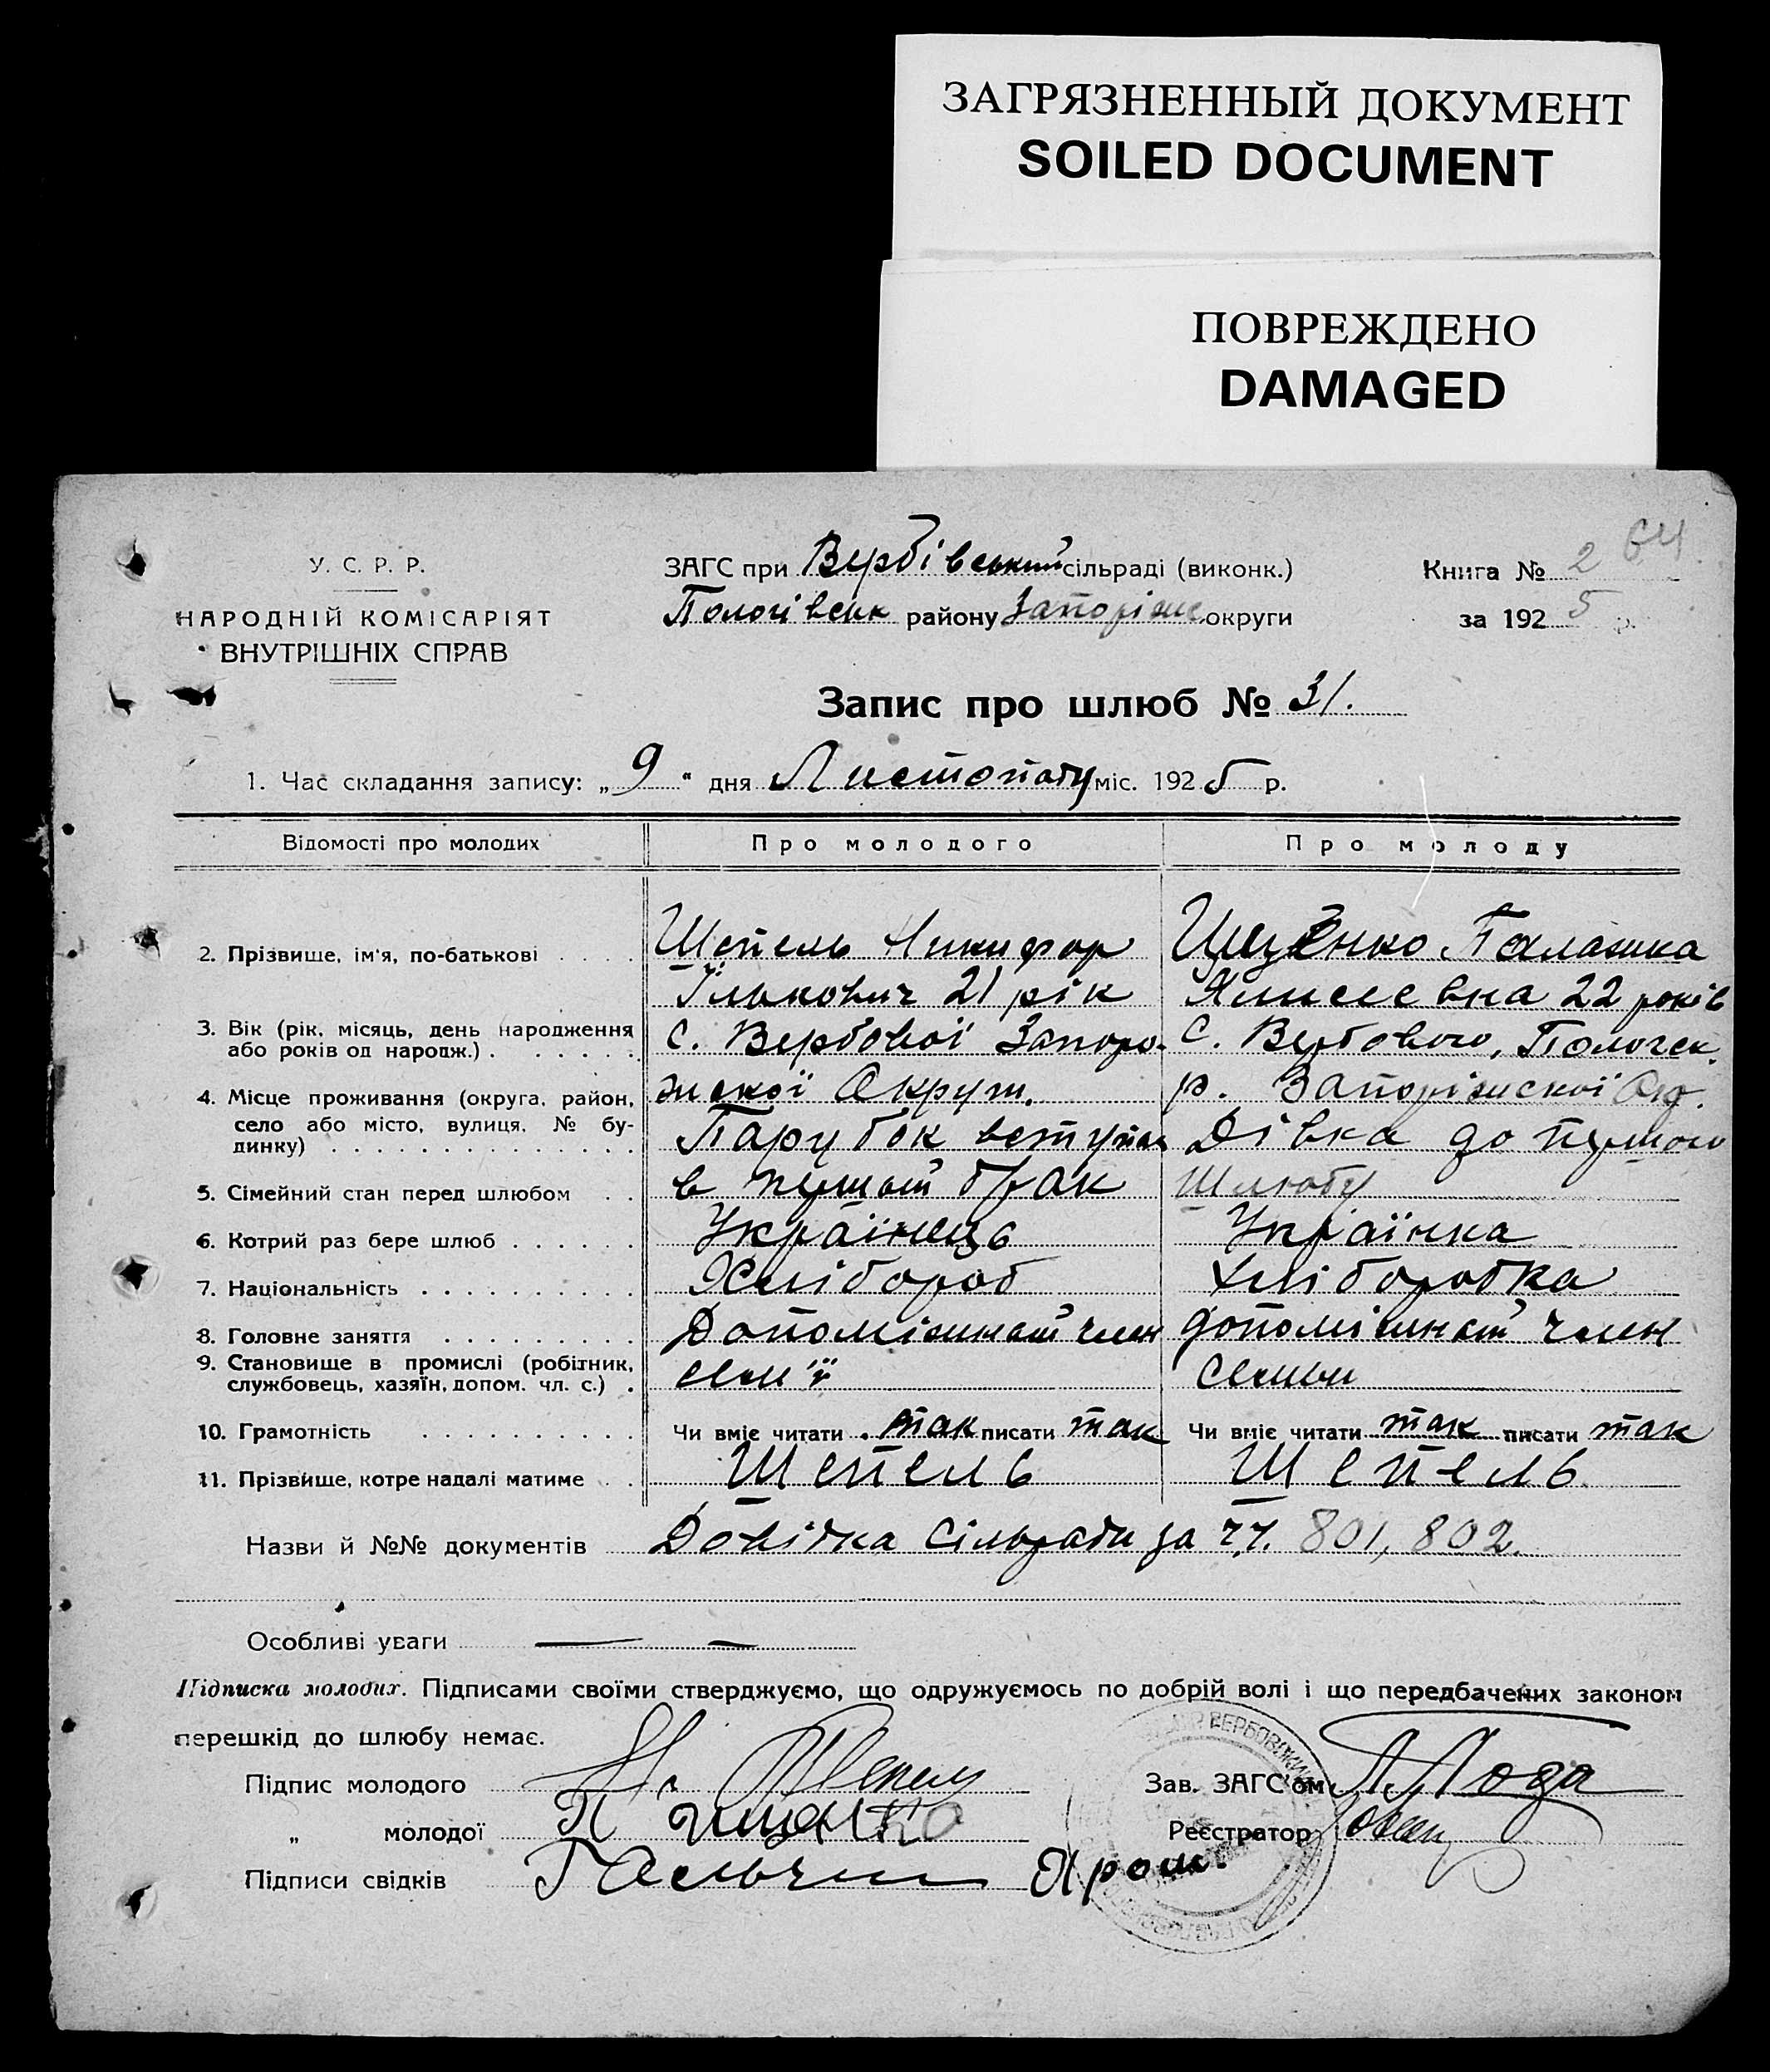 ЗАГРЯЗНЕННЫЙ ДОКУМЕНТ
SOILED DOCUMENT
ПОВРЕЖДЕНО
DAMAGED
64
У. С. Р. Р.
НАРОДНІЙ КОМІСАРІЯТ
ВНУТРІШНІХ СПРАВ
ЗАГС при Вербівський сільраді (виконк.)
Пологівськ району Запоріж округи
Книга № 2
за 1925 р.
Запис про шлюб № 31.
1. Час складання запису: „ 9 “ дня Листопаду міс. 1925 р.
Відомості про молодих Про молодого Про молоду
2. Прізвище, ім'я, по-батькові . . . . Шепель Никифор Палашка
Ількович 21 рік 22 років
3. Вік (рік, місяць, день народження С. Вербової Запоро- С. Вербового, Пологск.
або років од народж.) . . . . . .
4. Місце проживання (округа, район, жскої Округи. р. Запоріжскої Окр.
село або місто, вулиця, № бу- Парубок вступа Дівка до першого
динку) . . . . . . . . . . . . . .
5. Сімейний стан перед шлюбом . . в первий брак шлюбу
6. Котрий раз бере шлюб . . . . . . Українець Українка
7. Національність . . . . . . . . . . Хлібороб Хліборобка
8. Головне заняття . . . . . . . . . Допоміжний член допоміжний член
9. Становище в промислі (робітник, сем'ї семьи
службовець, хазяїн, допом. чл. с.) .
10. Грамотність . . . . . . . . . . Чи вміє читати так писати так Чи вміє читати так писати так
11. Прізвище, котре надалі матиме . . Шепель Шепель
Назви й №№ документів Довідка Сільради за чч. 801, 802.
Особливі уваги — —
Підписка молодих. Підписами своїми стверджуємо, що одружуємось по добрій волі і що передбачених законом
перешкід до шлюбу немає.
Підпис молодого Н. Шепель Зав. ЗАГС'ом Лода
„ молодої П Реєстратор
Підписи свідків